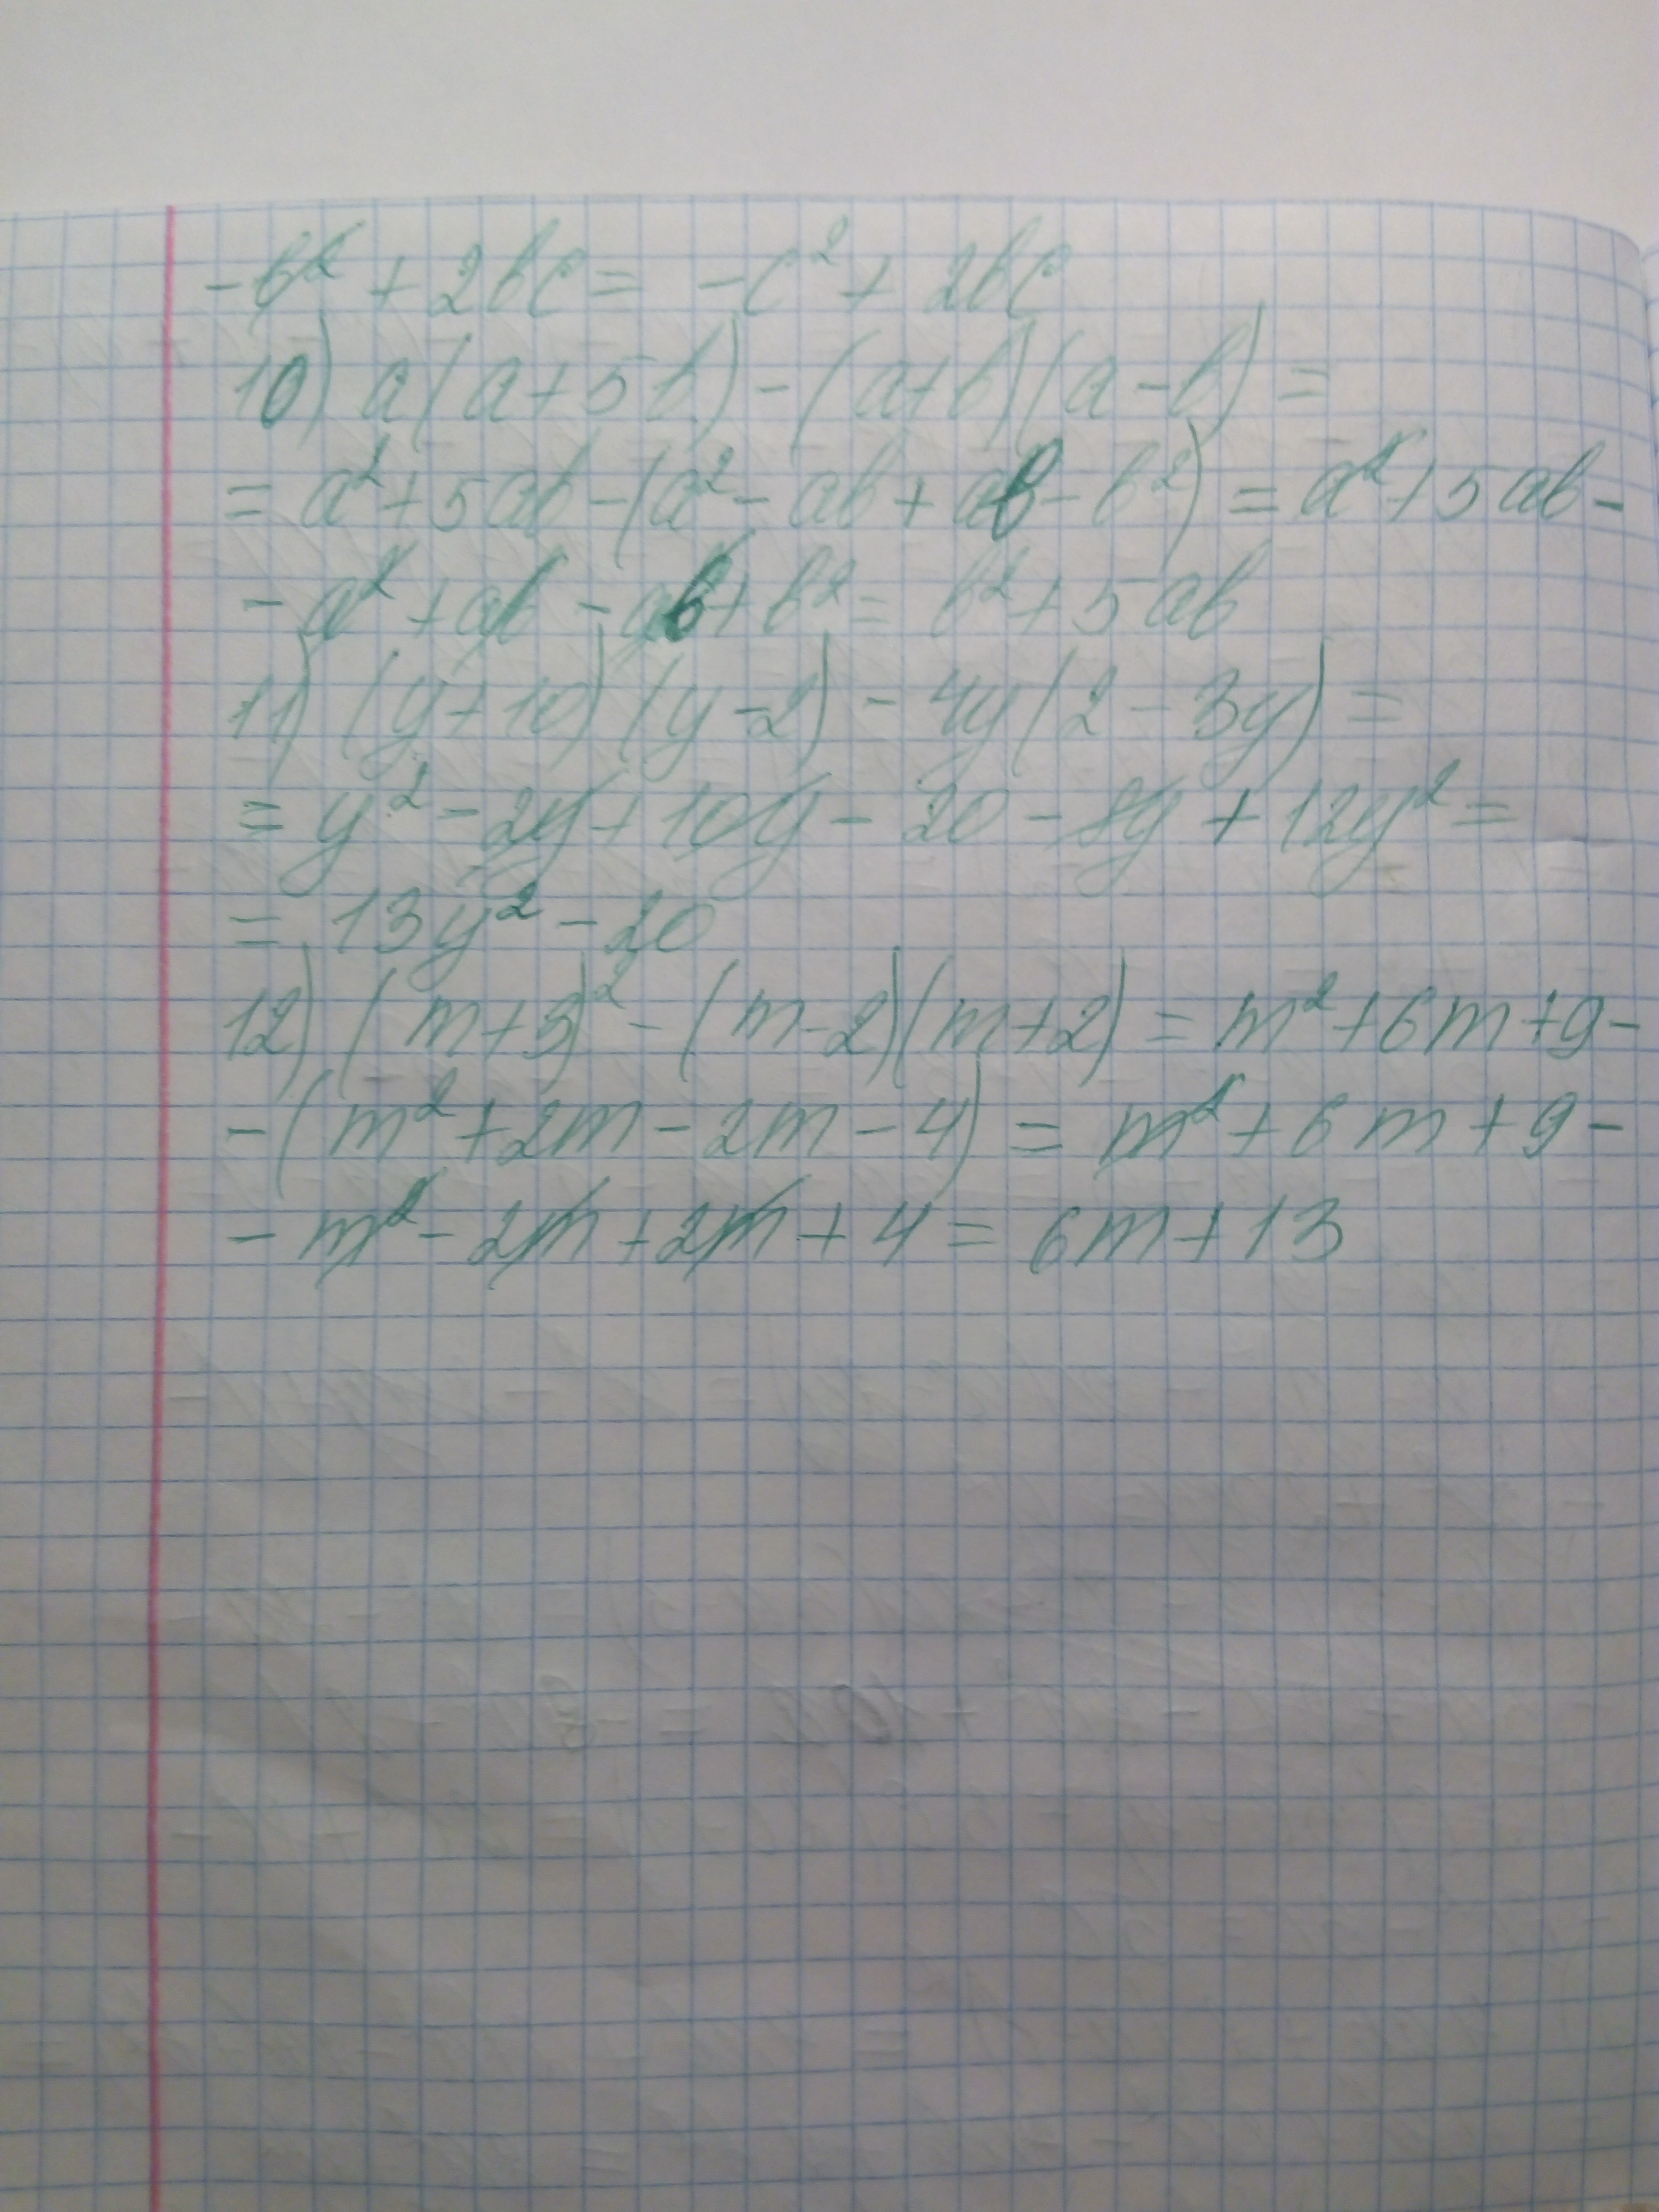 -b² + 2bc = -c² + 2bc
10) a(a+5b) - (a+b)(a-b) =
= a² + 5ab - (a² - ab + ab - b²) = a² + 5ab -
- a² + ab - ab + b² = b² + 5ab
11) (y+10)(y-2) - 4y(2-3y) =
= y² - 2y + 10y - 20 - 8y + 12y² =
= 13y² - 20
12) (m+3)² - (m-2)(m+2) = m² + 6m + 9 -
- (m² + 2m - 2m - 4) = m² + 6m + 9 -
- m² - 2m + 2m + 4 = 6m + 13